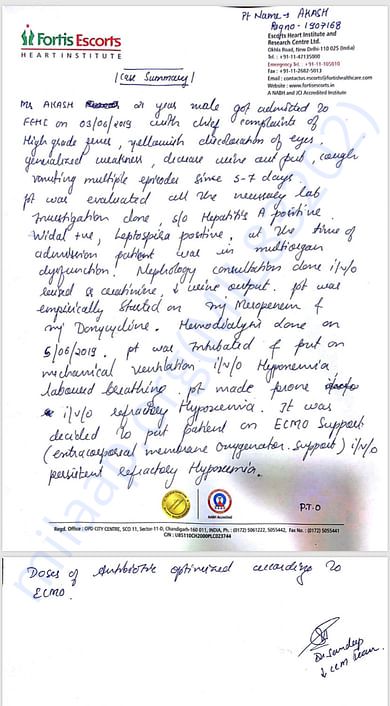 Pt Name → AKASH
Regno - 1907168
Fortis Escorts
HEART INSTITUTE
Escorts Heart Institute and
Research Centre Ltd.
Okhla Road, New Delhi-110 025 (India)
Tel. : +91-11-47135000
Emergency Tel. : +91-11-105010
Fax : +91-11-2682-5013
Email : contactus.escorts@fortishealthcare.com
Website : www.fortisescorts.in
A NABH and JCI Accredited Institute
Case Summary
Mr AKASH 21 year male got admitted to
FEHI on 03/06/2019 with chief complaints of
High grade fever, yellowish discoloration of eyes,
generalized weakness, decrease urine out put, cough
vomiting multiple episodes since 5-7 days
pt was evaluated all the necessary lab
Investigation done, s/o Hepatitis A positive,
Widal +ve, Leptospira positive, at the time of
admission patient was in multiorgan
dysfunction. Nephrology consultation done i/v/o
raised S. creatinine, ↓ urine output. pt was
empirically started on inj Meropenem &
inj Doxycycline. Hemodialysis done on
5/06/2019. pt was Intubated & put on
mechanical ventilation i/v/o Hypoxemia,
laboured breathing pt made prone
i/v/o refractory Hypoxemia. It was
decided to put patient on ECMO Support
(extracorporeal membrane Oxygenator support) i/v/o
persistent refractory Hypoxemia.
P.T.O
Regd. Office : OPD CITY CENTRE, SCO 11, Sector 11-D, Chandigarh-160 011, INDIA, Ph.: (0172) 5061222, 5055442, Fax No. : (0172) 5055441
CIN : U85110CH2000PLC023744
Doses of Antibiotic optimized according to
ECMO.
Dr Sandeep
& CCM Team.